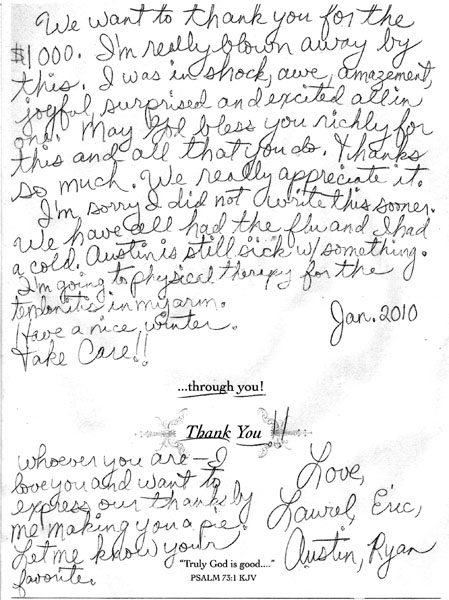 We want to thank you for the
$1000. I'm really blown away by
this. I was in shock, awe, amazement,
joyful, surprised and excited all in
one. May God bless you richly for
this and all that you do. Thanks
so much. We really appreciate it.
I'm sorry I did not write this sooner.
We have all had the flu and I had
a cold. Austin is still sick w/ something.
I'm going to physical therapy for the
tendonitis in my arm.
Have a nice winter.
Jan. 2010
Take Care!!
...through you!
Thank You!!
whoever you are – I
love you and want to
express our thanks by
me making you a pie.
Let me know your
favorite.
Love,
Laurel, Eric,
Austin, Ryan
"Truly God is good...."
PSALM 73:1 KJV